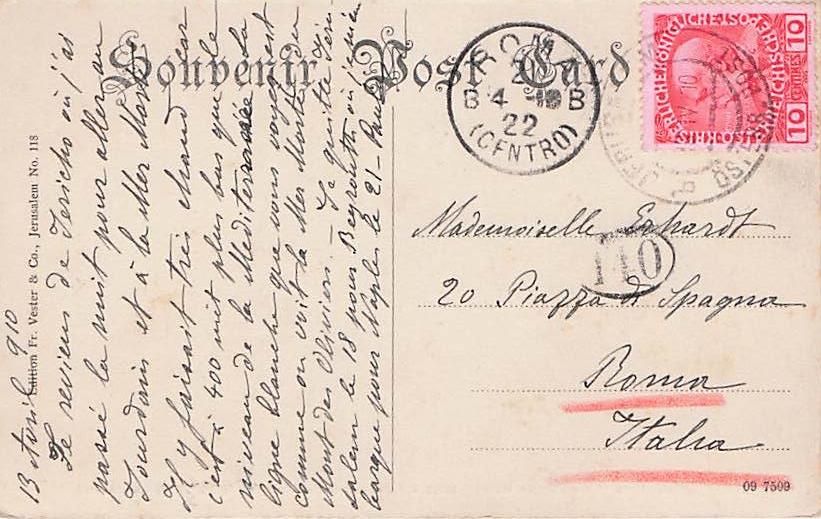 Souvenir Post Card
Edition Fr. Vester & Co., Jerusalem No. 118
13 Avril 910
Je reviens de Jericho où j'ai
passé la nuit pour aller au
Jourdain et à la Mer Morte
Il y faisait très chaud car
c'est à 400 mèt plus bas que le
niveau de la Mediterranée La
ligne blanche que vous voyez est
comme on voit la Mer Morte du
Mont des Oliviers. — Je quitte Jeru
salem le 18 pour Beyrouth où j'em
barque pour Naples le 21 - 
ROMA
8 4 - 10 8
22
(CENTRO)
KAISERLICHE KÖNIGLICHE ÖSTERREICHISCHE POST
10 CENTIMES 10
140
Mademoiselle Erhardt
20 Piazza di Spagna
Roma
Italia
09 7509